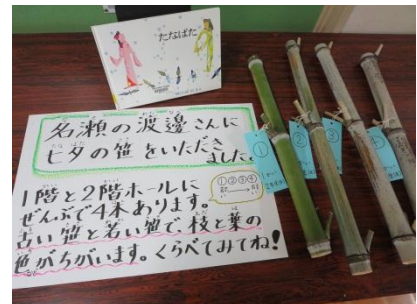 たなばた
名瀬の渡邊さんに
七夕の笹をいただき
ました。
1階と2階ホールに
ぜんぶで4本あります。
①②③④
古い笹と若い笹で、枝と葉の
色がちがいます。くらべてみてね!
①
②
③
④